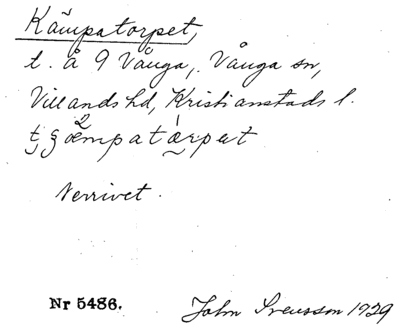 Kämpatorpet,
t. å 9 Vånga, Vånga sn,
Villands hd, Kristianstads l.
Nerrivet.
Nr 5486. John Svensson 1929